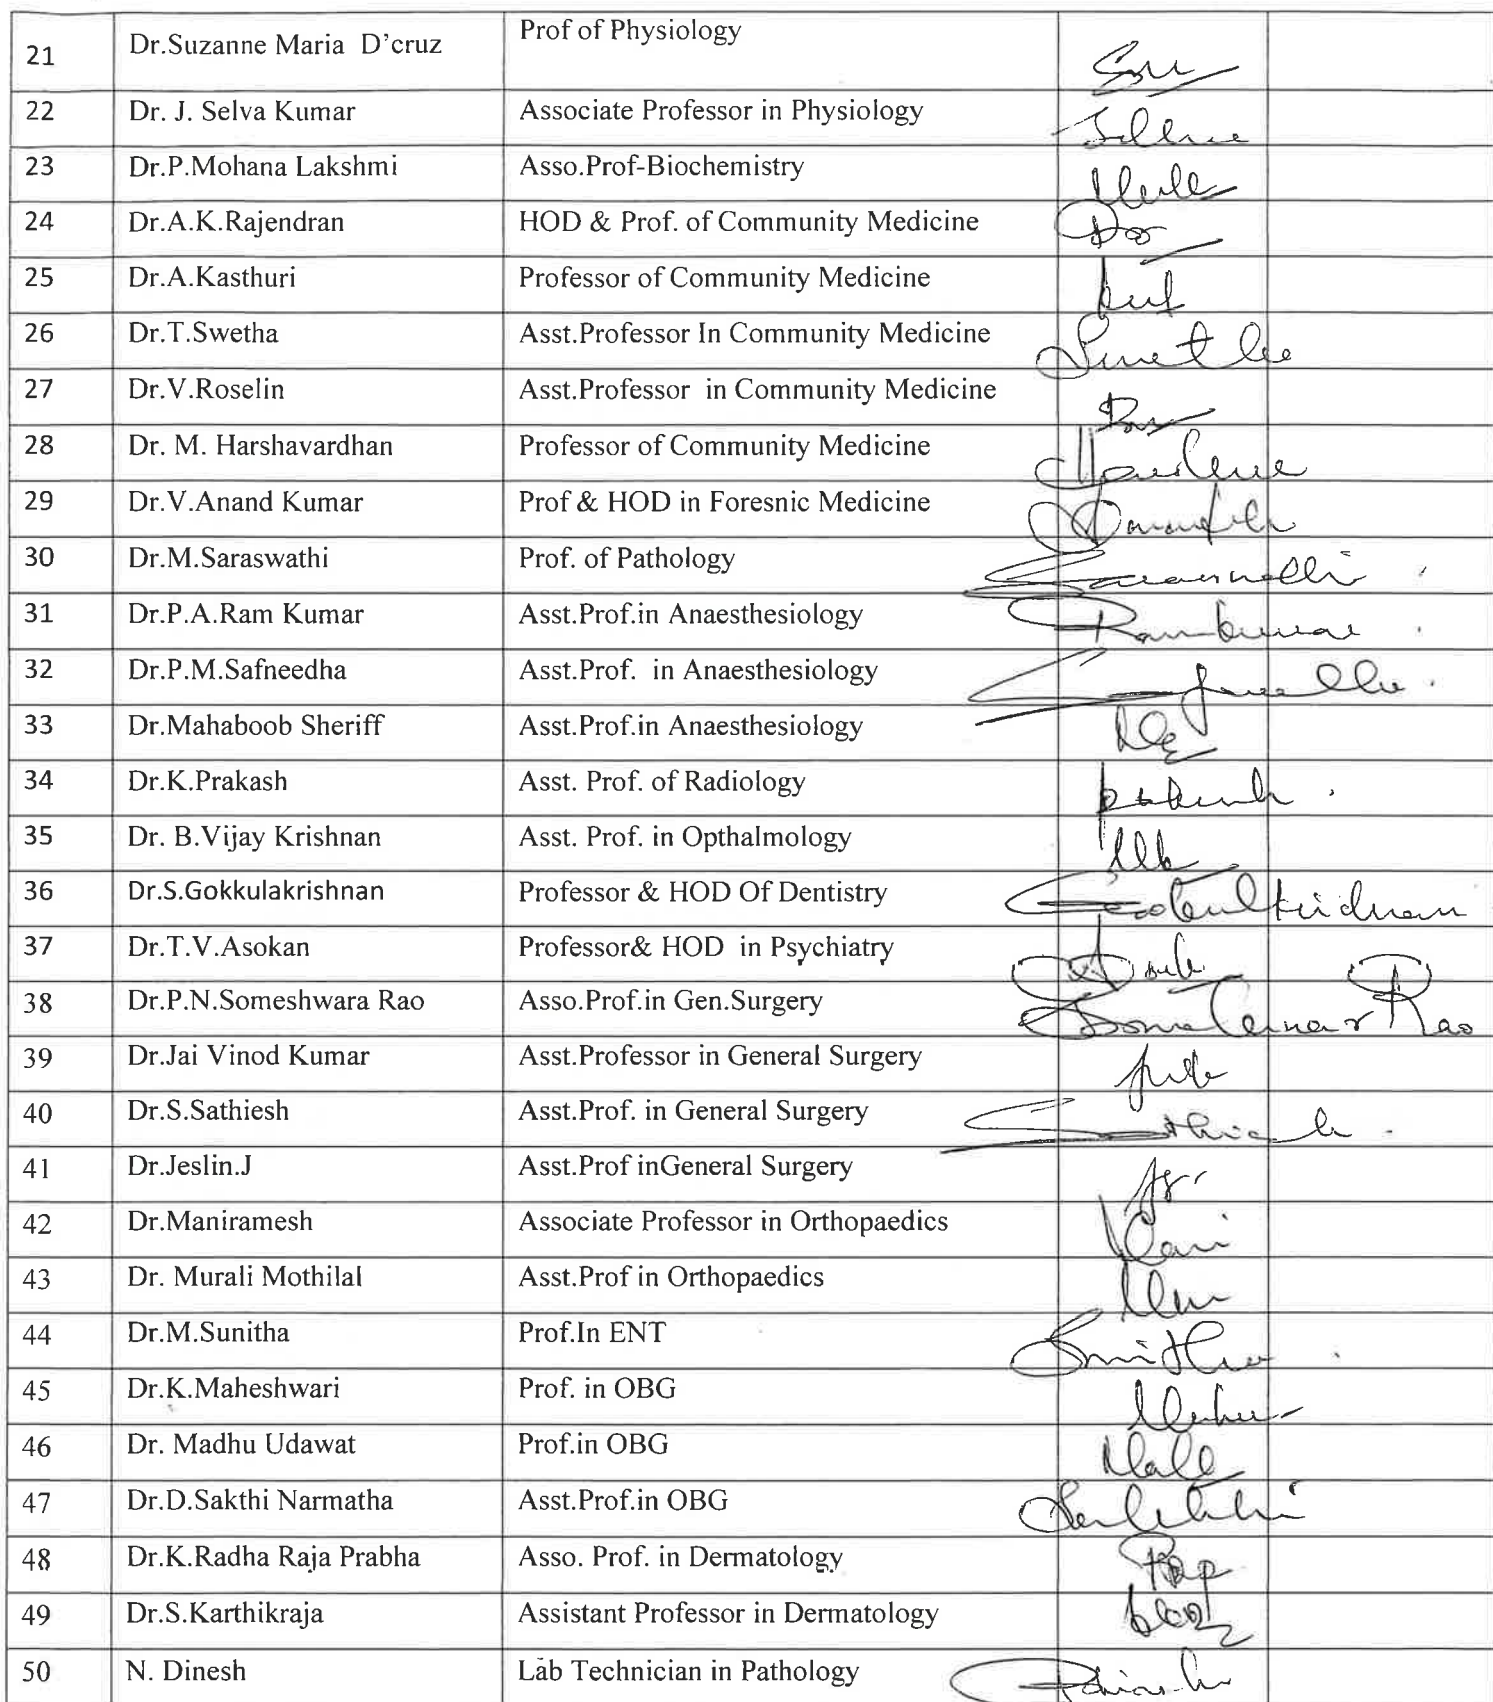 21 Dr.Suzanne Maria D'cruz Prof of Physiology
22 Dr. J. Selva Kumar Associate Professor in Physiology
23 Dr.P.Mohana Lakshmi Asso.Prof-Biochemistry
24 Dr.A.K.Rajendran HOD & Prof. of Community Medicine
25 Dr.A.Kasthuri Professor of Community Medicine
26 Dr.T.Swetha Asst.Professor In Community Medicine
27 Dr.V.Roselin Asst.Professor in Community Medicine
28 Dr. M. Harshavardhan Professor of Community Medicine
29 Dr.V.Anand Kumar Prof & HOD in Foresnic Medicine
30 Dr.M.Saraswathi Prof. of Pathology
31 Dr.P.A.Ram Kumar Asst.Prof.in Anaesthesiology
32 Dr.P.M.Safneedha Asst.Prof. in Anaesthesiology
33 Dr.Mahaboob Sheriff Asst.Prof.in Anaesthesiology
34 Dr.K.Prakash Asst. Prof. of Radiology
35 Dr. B.Vijay Krishnan Asst. Prof. in Opthalmology
36 Dr.S.Gokkulakrishnan Professor & HOD Of Dentistry
37 Dr.T.V.Asokan Professor& HOD in Psychiatry
38 Dr.P.N.Someshwara Rao Asso.Prof.in Gen.Surgery
39 Dr.Jai Vinod Kumar Asst.Professor in General Surgery
40 Dr.S.Sathiesh Asst.Prof. in General Surgery
41 Dr.Jeslin.J Asst.Prof inGeneral Surgery
42 Dr.Maniramesh Associate Professor in Orthopaedics
43 Dr. Murali Mothilal Asst.Prof in Orthopaedics
44 Dr.M.Sunitha Prof.In ENT
45 Dr.K.Maheshwari Prof. in OBG
46 Dr. Madhu Udawat Prof.in OBG
47 Dr.D.Sakthi Narmatha Asst.Prof.in OBG
48 Dr.K.Radha Raja Prabha Asso. Prof. in Dermatology
49 Dr.S.Karthikraja Assistant Professor in Dermatology
50 N. Dinesh Lab Technician in Pathology